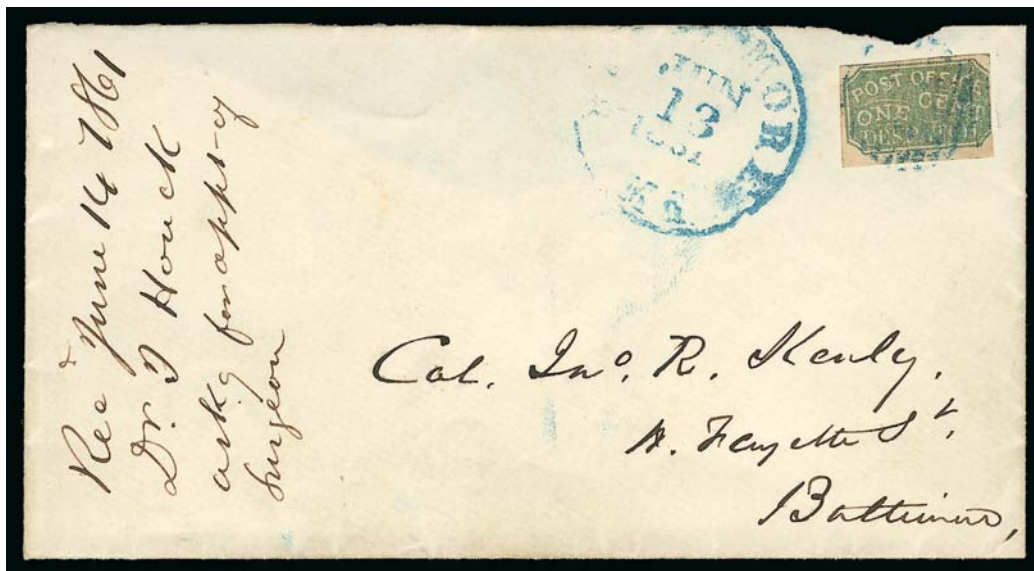 Rec'd June 14 1861
Dr. J Houck
ask'g for appt - of
surgeon
MORE
JUN
13
1861
Md
POST OFFICE
ONE CENT
DESPATCH
Col. Jno. R. Kenly.
Fayette St,
Baltimore,